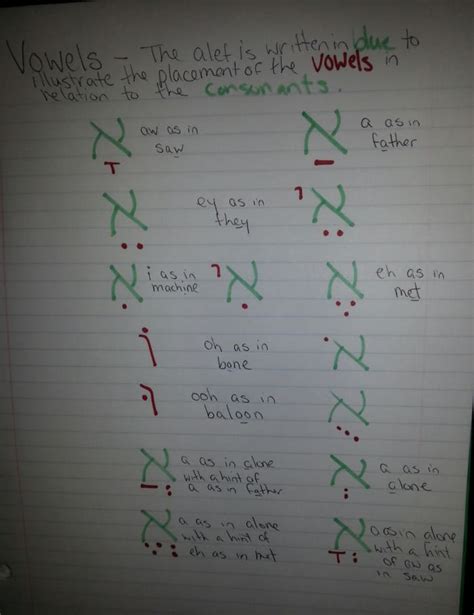 Vowels - The alef is written in blue to
illustrate the placement of the vowels in
relation to the consonants.
אָ aw as in
saw
אַ a as in
father
אֵ ey as in
they
אֵי
אִ i as in
machine
אִי
אֶ eh as in
met
וֹ oh as in
bone
אֹ
וּ ooh as in
baloon
אֻ
אֲ a as in alone
with a hint of
a as in father
אְ a as in
alone
אֱ a as in alone
with a hint of
eh as in met
אֳ a as in alone
with a hint
of aw as
in saw